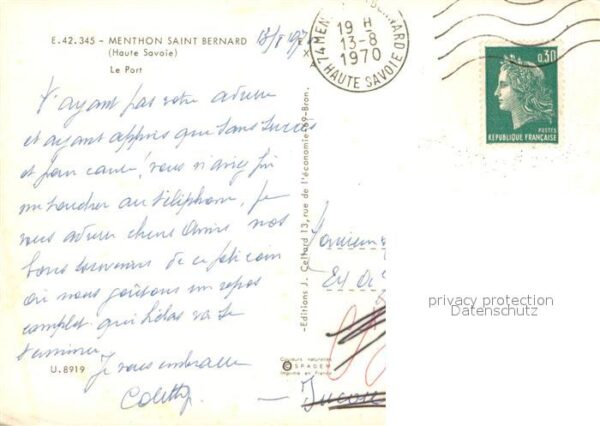 E.42.345 - MENTHON SAINT BERNARD
(Haute Savoie)
Le Port
13/8 1970
19 H
13-8
1970
74 MEN BERNARD
HAUTE SAVOIE
0,30
POSTES
REPUBLIQUE FRANÇAISE
N'ayant pas votre adresse
et ayant appris que sans succès
et pour cause! vous n'avez pu
me toucher au téléphone, je
vous adresse chers Amis nos
bons souvenirs de ce petit coin
où nous goûtons un repos
complet qui hélas va se
terminer
Je vous embrasse
Colette
-Editions J. Cellard 13, rue de l'économie 69-Bron.
Monsieur
privacy protection
Datenschutz
U.8919
Couleurs naturelles
© SPADEM
Imprimé en France